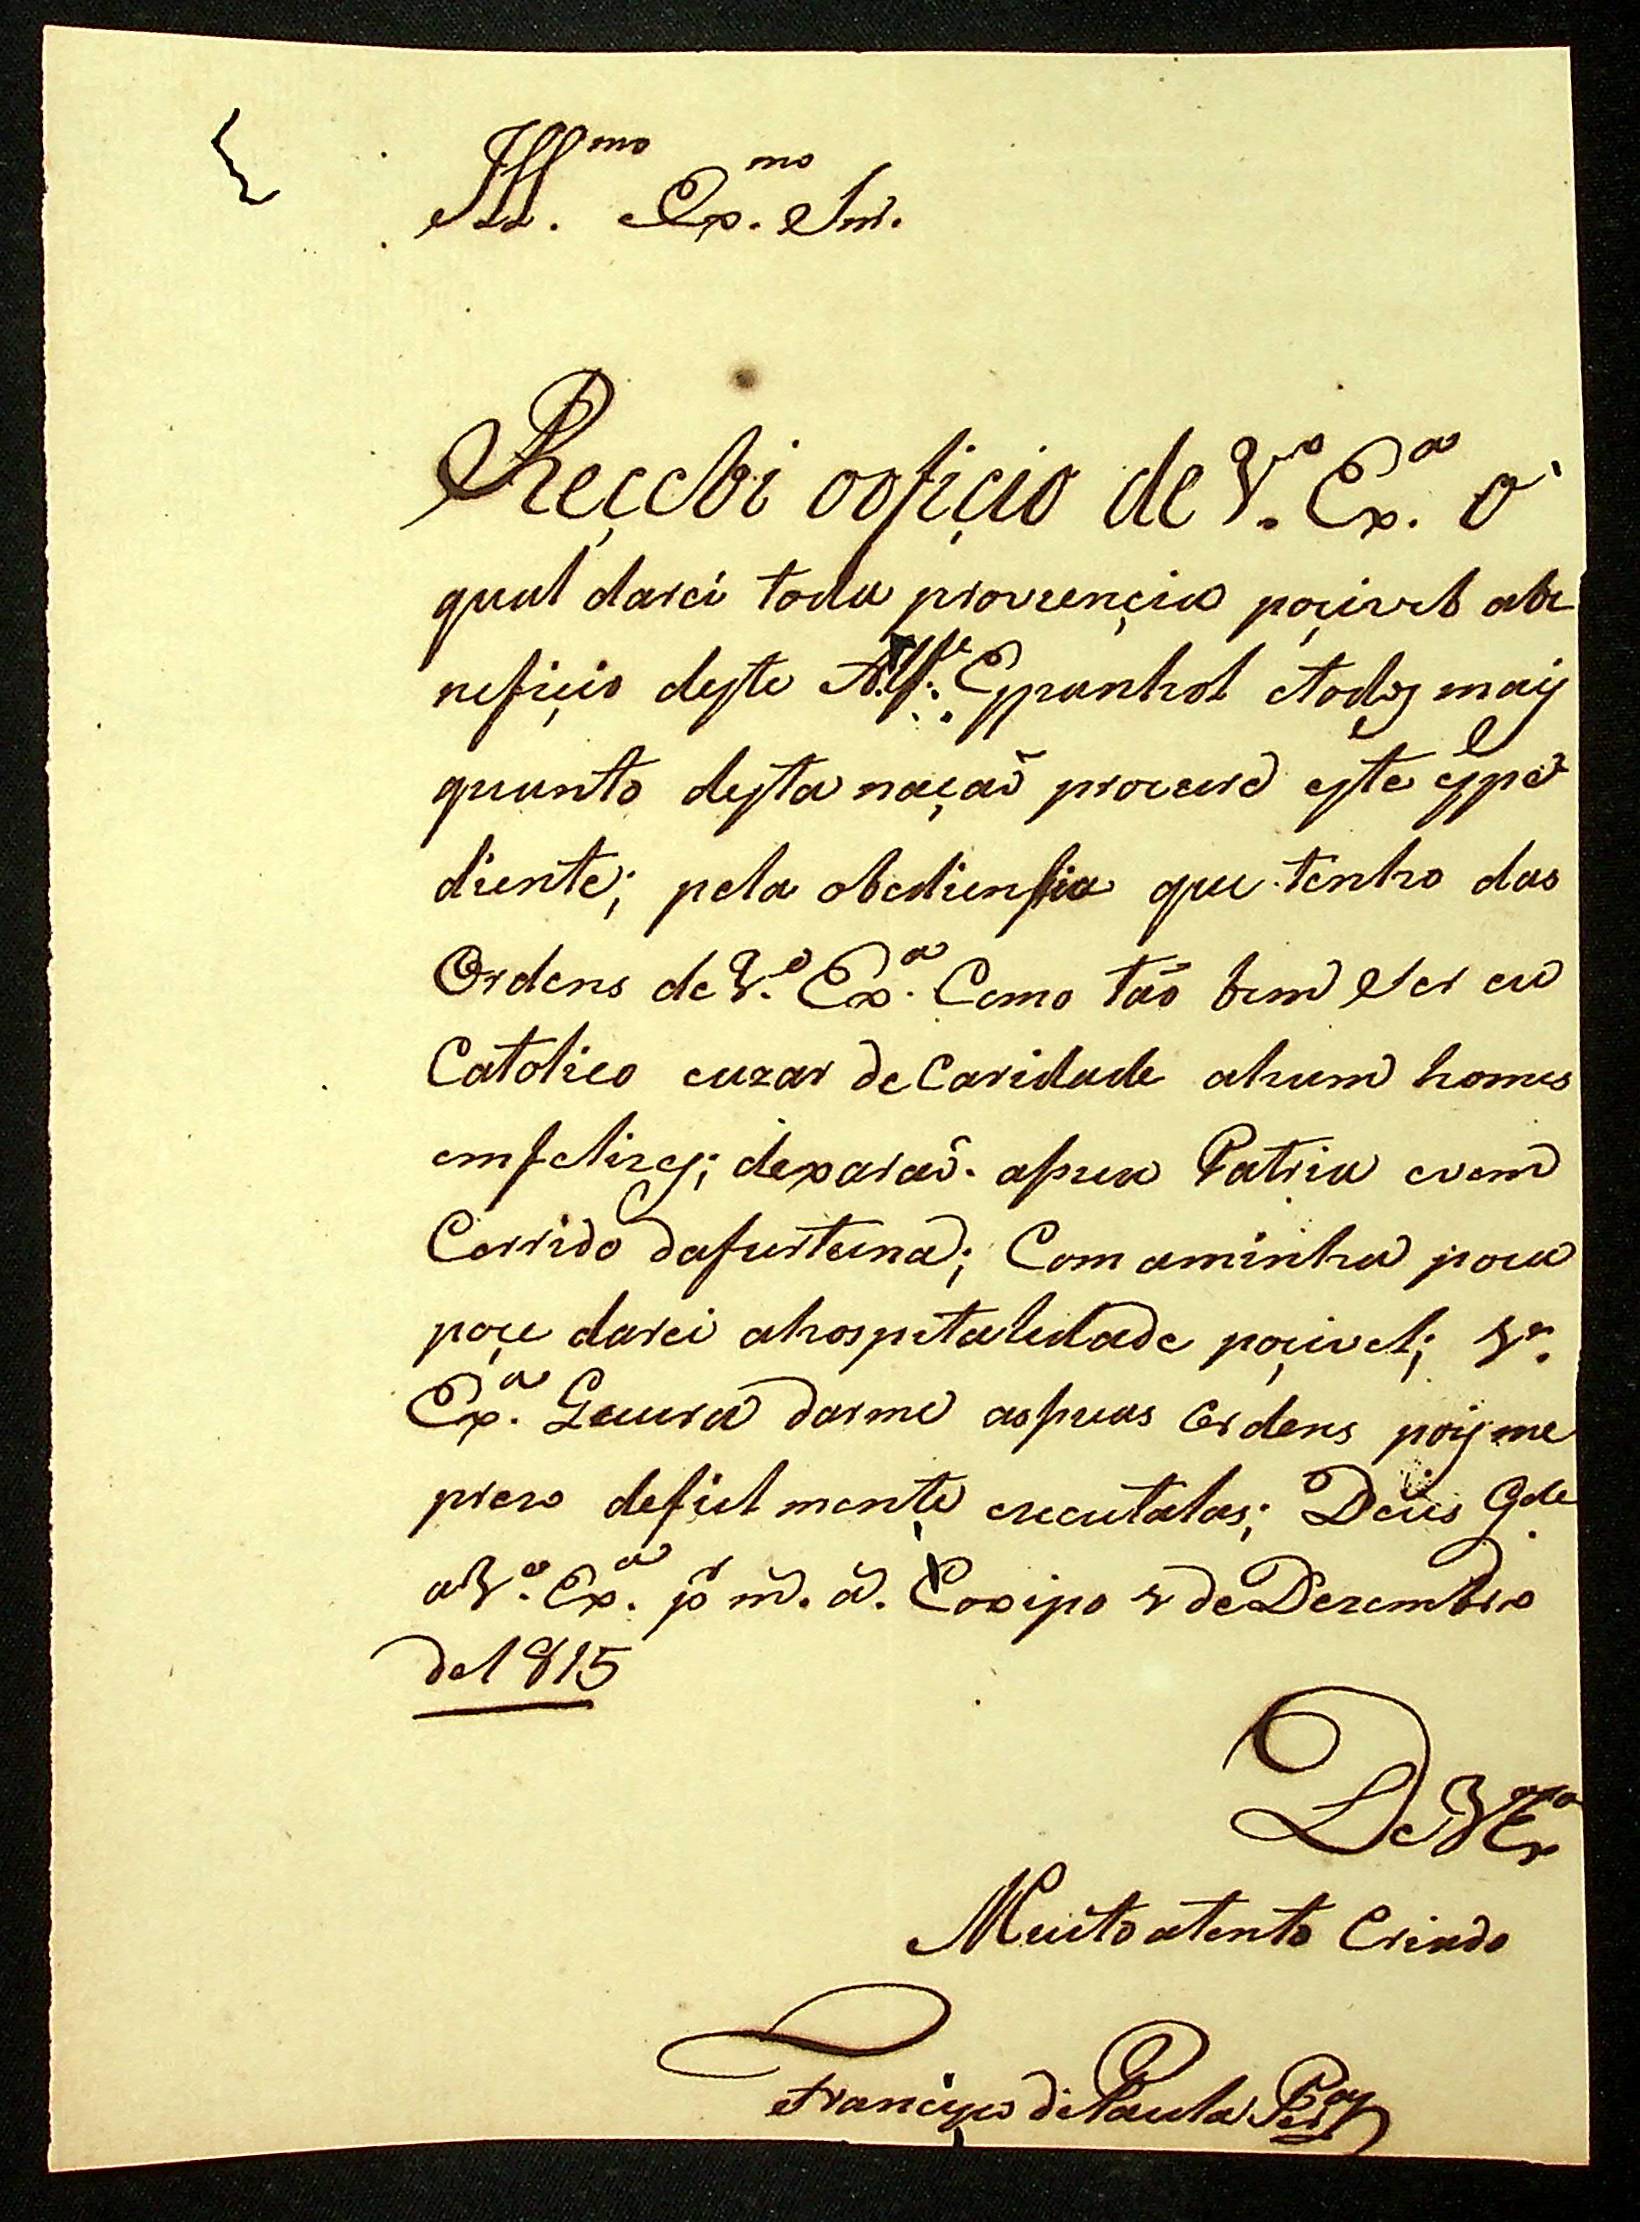 Ill.mo Ex.mo Snr.
Reçebi oofiçio de V.a Ex.a o
qual darei toda provençia poçivel abe
nefiçio deste Alf.e Espanhol etodos mais
quanto desta naçaõ procure este espe
diente; pela obediensia que tenho das
Ordens de V.a Ex.a Como taõ bem Ser eu
Catolico euzar de Caridade ahum homes
emfelizes; dexaraõ asua Patria evem
Corrido dafurtuna; Com aminha pouca
poçe darei ahospitalidade poçivel; V.a
Ex.a darme assuas Ordens poisme
prezo defiel mente executalas; Deus G.de
aV.a Ex.a p.r m. a. Coxipo de Dezembro
de 1815
De V.a Ex.a
Muito atento Criado
Françisco de Paula